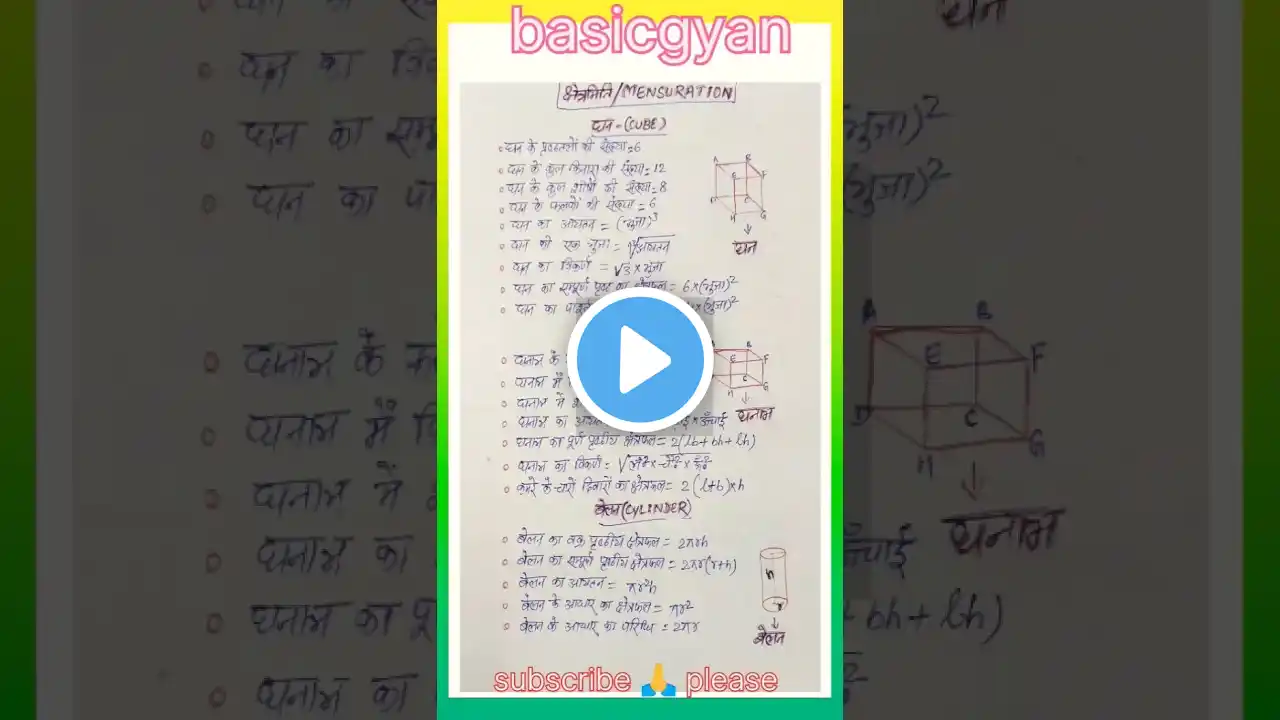 basicgyan
क्षेत्रमिति/MENSURATION
घन-(CUBE)
घन के पृष्ठतलों की संख्या=6
घन के कुल किनारा की संख्या=12
घन के कुल शीर्षो की संख्या=8
घन के फलकों की संख्या=6
घन का आयतन = (भुजा)³
घन की एक भुजा = ∛आयतन
घन का विकर्ण = √3 × भुजा
घन का सम्पूर्ण पृष्ठ का क्षेत्रफल = 6×(भुजा)²
घन का (भुजा)²
A B E F D C H G
घन
घनाभ के
घनाभ में
घनाभ में
घनाभ का ×ऊँचाई
घनाभ का पूर्ण पृष्ठीय क्षेत्रफल = 2(lb+bh+lh)
घनाभ का विकर्ण =
कमरे के चारों दिवारों का क्षेत्रफल = 2(l+b)×h
B E F C H G
घनाभ
बेलन(CYLINDER)
बेलन का वक्र पृष्ठीय क्षेत्रफल = 2πrh
बेलन का सम्पूर्ण पृष्ठीय क्षेत्रफल = 2πr(r+h)
बेलन का आयतन = πr²h
बेलन के आधार का क्षेत्रफल = πr²
बेलन के आधार का परिधि = 2πr
h
r
बेलन
subscribe 🙏 please